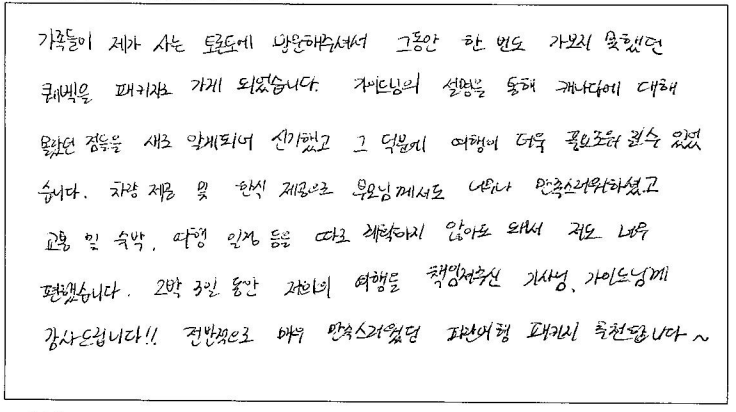 가족들이 제가 사는 토론토에 방문해주셔서 그동안 한 번도 가보지 못했던
퀘벡을 패키지로 가게 되었습니다. 가이드님의 설명을 통해 캐나다에 대해
몰랐던 점들을 새로 알게되어 신기했고 그 덕분에 여행이 더욱 풍요로워질수 있었
습니다. 차량 제공 및 한식 제공으로 부모님께서도 너무나 만족스러워하셨고
교통 및 숙박, 여행 일정 등을 따로 계획하지 않아도 돼서 저도 너무
편했습니다. 2박 3일 동안 저희의 여행을 책임져주신 기사님, 가이드님께
감사드립니다!! 전반적으로 매우 만족스러웠던 파란여행 패키지 추천합니다~